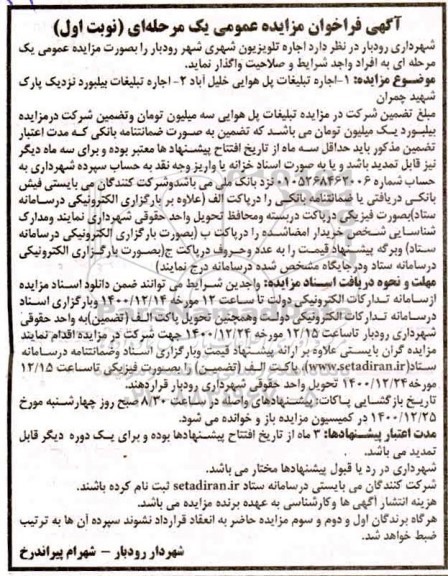 آگهی فراخوان مزایده عمومی یک مرحله‌ای (نوبت اول)
شهرداری رودبار در نظر دارد اجاره تلویزیون شهری شهر رودبار را بصورت مزایده عمومی یک
مرحله ای به افراد واجد شرایط و صلاحیت واگذار نماید.
موضوع مزایده: ۱-اجاره تبلیغات پل هوایی خلیل آباد ۲- اجاره تبلیغات بیلبورد نزدیک پارک
شهید چمران
مبلغ تضمین شرکت در مزایده تبلیغات پل هوایی سه میلیون تومان وتضمین شرکت درمزایده
بیلبورد یک میلیون تومان می باشد که تضمین به صورت ضمانتنامه بانکی که مدت اعتبار
تضمین مذکور باید حداقل سه ماه از تاریخ افتتاح پیشنهاد ها معتبر بوده و برای سه ماه دیگر
نیز قابل تمدید باشد و یا به صورت اسناد خزانه یا واریز وجه نقد به حساب سپرده شهرداری به
حساب شماره نزد بانک ملی می باشدوشرکت کنندگان می بایستی فیش
بانکی دریافتی یا ضمانتنامه بانکی را درپاکت الف (علاوه بر بارگزاری الکترونیکی درسامانه
ستاد)بصورت فیزیکی درپاکت دربسته ومحافظ تحویل واحد حقوقی شهرداری نمایند ومدارک
شناسایی شخص خریدار امضاشده را درپاکت ب (بصورت بارگزاری الکترونیکی درسامانه
ستاد) وبرگه پیشنهاد قیمت را به عدد وحروف درپاکت ج(بصورت بارگزاری الکترونیکی
درسامانه ستاد ودرجایگاه مشخص شده درسامانه درج نمایند)
مهلت و نحوه دریافت اسناد مزایده: واجدین شرایط می توانند ضمن دانلود اسناد مزایده
ازسامانه تدارکات الکترونیکی دولت تا ساعت ۱۲ مورخه ۱۴۰۰/۱۲/۱۴ وبارگزاری اسناد
درسامانه تدارکات الکترونیکی دولت وهمچنین تحویل پاکت الف (تضمین)به واحد حقوقی
شهرداری رودبار تاساعت ۱۲/۱۵ مورخه ۱۴۰۰/۱۲/۲۴ جهت شرکت در مزایده اقدام نمایند
مزایده گران بایستی علاوه بر ارائه پیشنهاد قیمت وبارگزاری اسناد وضمانتنامه درسامانه
ستاد(www.setadiran.ir)، پاکت الف (تضمین) را بصورت فیزیکی تاساعت ۱۲/۱۵
مورخه۱۴۰۰/۱۲/۲۴ تحویل واحد حقوقی شهرداری رودبار قراردهند.
تاریخ بازگشایی پاکات: پیشنهادهای واصله در ساعت ۸/۳۰ صبح روز چهارشنبه مورخ
۱۴۰۰/۱۲/۲۵ در کمیسیون مزایده باز و خوانده می شود.
مدت اعتبار پیشنهادها: ۳ ماه از تاریخ افتتاح پیشنهادها بوده و برای یک دوره دیگر قابل
تمدید می باشد.
شهرداری در رد یا قبول پیشنهادها مختار می باشد.
شرکت کنندگان می بایستی درسامانه ستاد setadiran.ir ثبت نام کرده باشند.
هزینه انتشار آگهی ها وکارشناسی به عهده برنده مزایده می باشد.
هرگاه برندگان اول و دوم و سوم مزایده حاضر به انعقاد قرارداد نشوند سپرده آن ها به ترتیب
ضبط خواهد شد.
شهردار رودبار - شهرام پیراندرخ